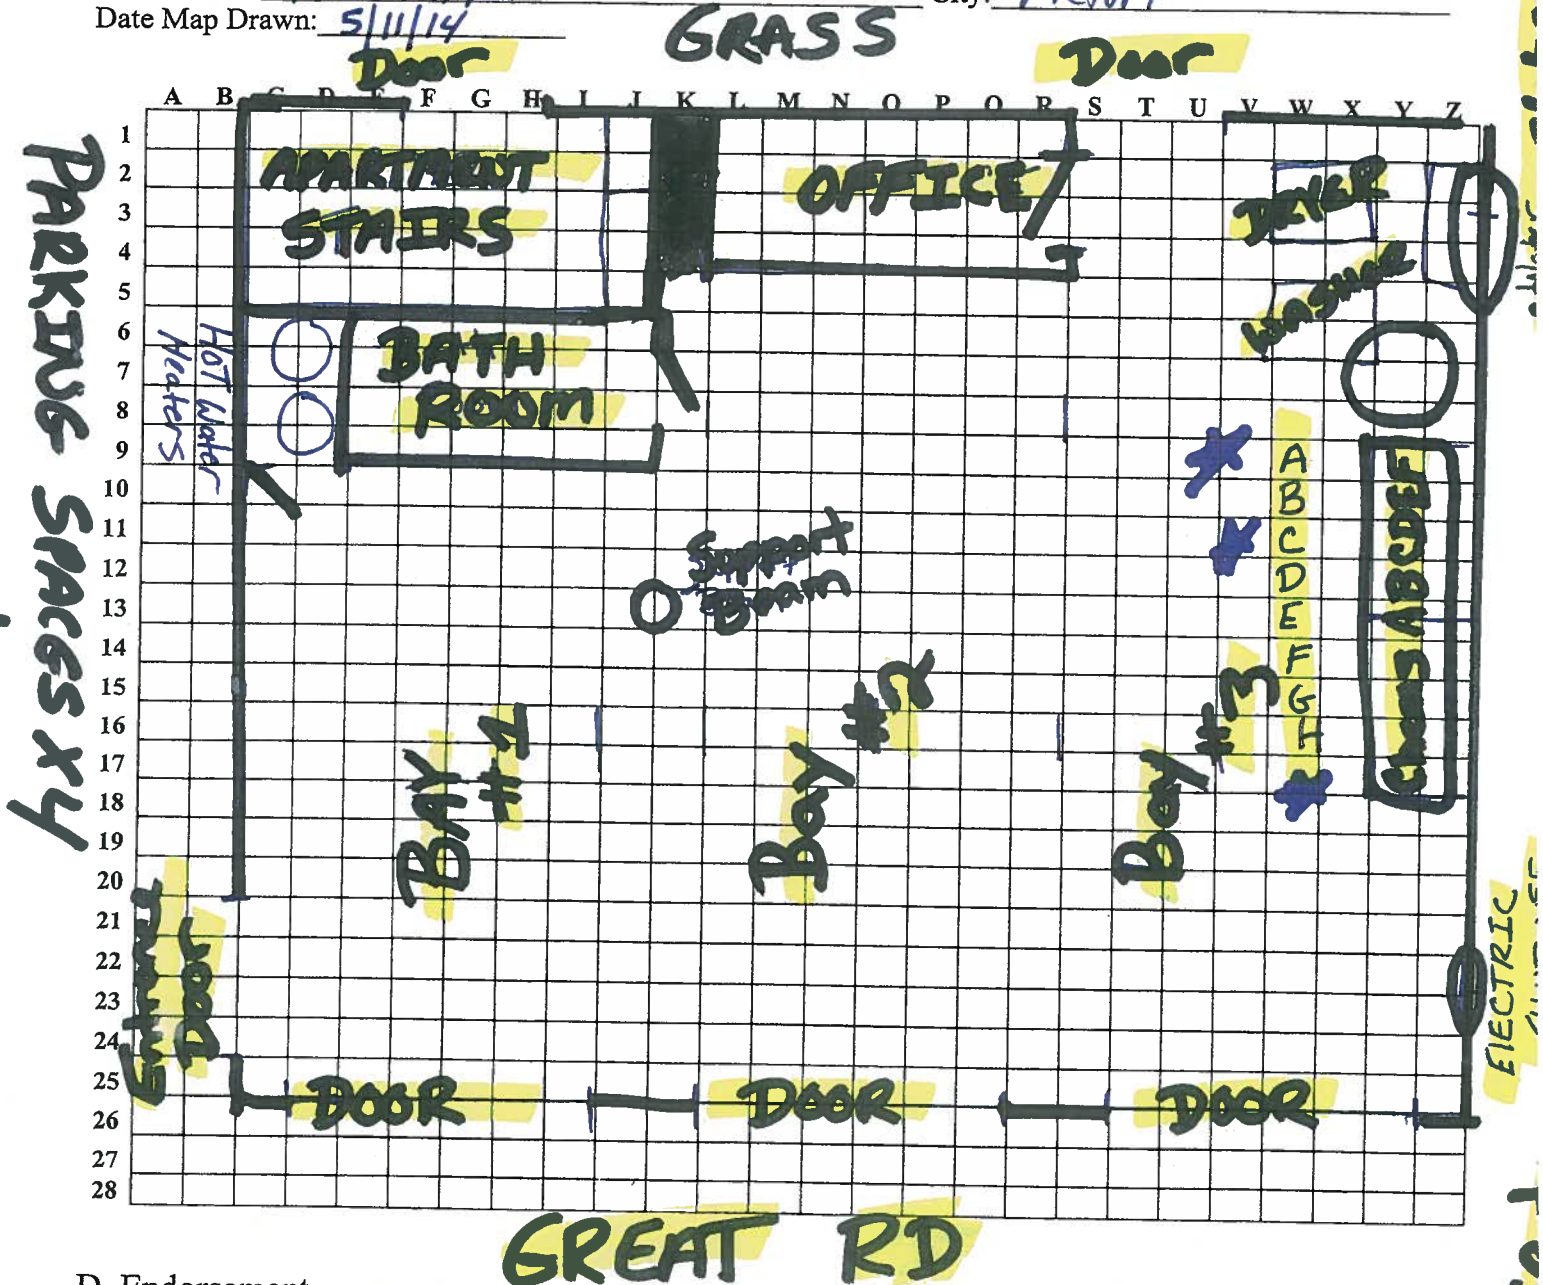 Date Map Drawn: 5/11/14
City:
GRASS
Door
Door
A B C D E F G H I J K L M N O P Q R S T U V W X Y Z
1
2
3
4
5
6
7
8
9
10
11
12
13
14
15
16
17
18
19
20
21
22
23
24
25
26
27
28
PARKING SPACES X 4
APARTMENT
STAIRS
OFFICE
DRYER
WASHER
Hot Water
Heaters
BATH
ROOM
Support
Beam
A
B
C
D
E
F
G
H
ABCDEF
BAY
#1
Bay #2
Bay #3
Entrance
Door
ELECTRIC
DOOR
DOOR
DOOR
GREAT RD
D. Endorsement